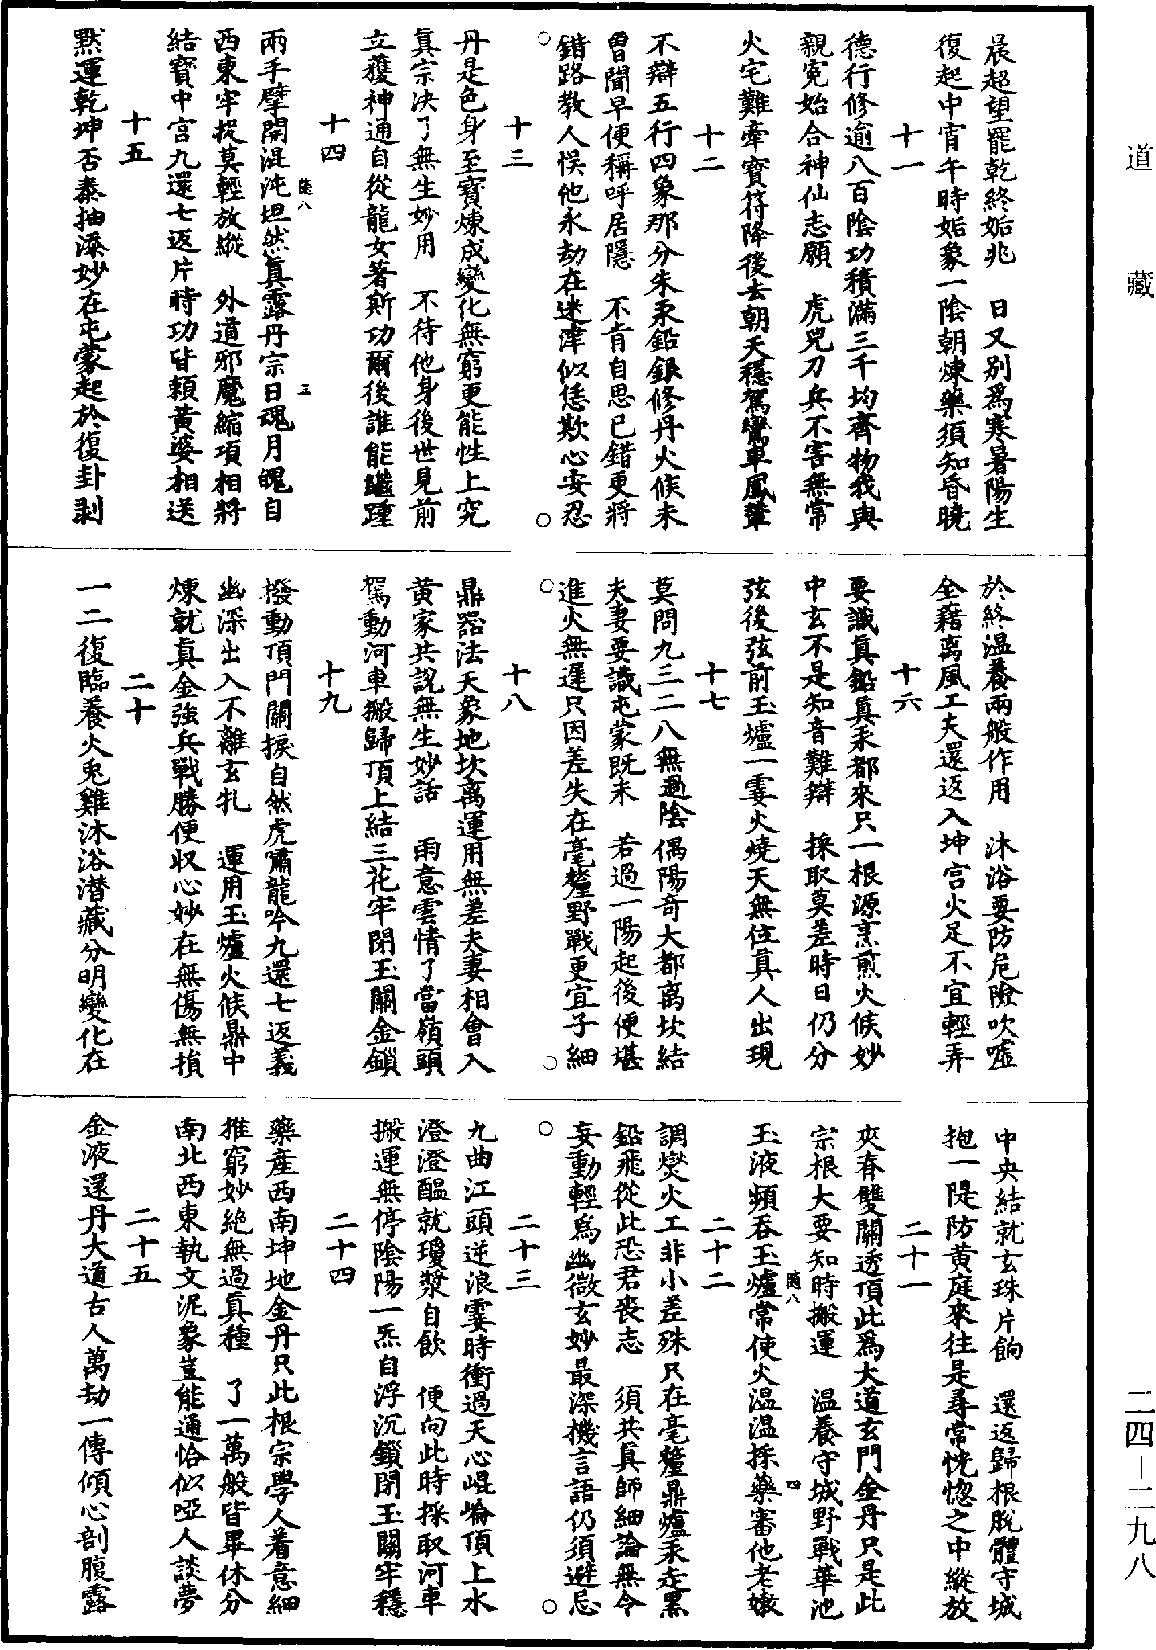 道藏
晨超望罷乾終姤兆　日又別爲寒暑陽生
復起中宵午時姤象一陰朝煉藥須知昏曉
十一
德行修逾八百陰功積滿三千均齊物我與
親寃始合神仙志願　虎兕刀兵不害無常
火宅難牽寶符降後去朝天穩駕鸞車鳳輦
十二
不辯五行四象那分朱汞鉛銀修丹火候未
曾聞早便稱呼居隱　不肯自思己錯更將
錯路教人悮他永劫在迷津似恁欺心安忍
十三
丹是色身至寶煉成變化無窮更能性上究
真宗決了無生妙用　不待他身後世見前
立獲神通自從龍女著斯功爾後誰能繼踵
十四
兩手擘開混沌坦然真露丹宗日魂月魄自
隨八　三
西東牢捉莫輕放縱　外道邪魔縮項相將
結寶中宮九還七返片時功皆賴黃婆相送
十五
默運乾坤否泰抽添妙在屯蒙起於復卦剥
於終温養兩般作用　沐浴要防危險吹噓
全藉离風工夫還返入坤宮火足不宜輕弄
十六
要識真鉛真汞都來只一根源烹煎火候妙
中玄不是知音難辯　採取莫差時日仍分
弦後弦前玉爐一霎火燒天無位真人出現
十七
莫問九三二八無過陰偶陽奇大都离坎結
夫妻要識屯蒙既未　若過一陽起後便堪
進火無遲只因差失在毫釐野戰更宜子細
十八
鼎器法天象地坎离運用無差夫妻相會入
黃家共說無生妙話　雨意雲情了當嶺頭
駕動河車搬歸頂上結三花牢閉玉關金鎖
十九
撥動頂門關捩自然虎嘯龍吟九還七返義
幽深出入不離玄牝　運用玉爐火候鼎中
煉就真金強兵戰勝便収心妙在無傷無損
二十
一二復臨養火兎雞沐浴潛藏分明變化在
中央結就玄珠片餉　還返歸根脫體守城
抱一隄防黃庭來往是尋常恍惚之中縱放
二十一
夾脊雙關透頂此爲大道玄門金丹只是此
宗根大要知時搬運　温養守城野戰華池
隨八　四
玉液頻吞玉爐常使火温温採藥審他老嫩
二十二
調燮火工非小差殊只在毫釐鼎爐汞走黑
鉛飛從此恐君喪志　須共真師細論無令
妄動輕爲幽微玄妙最深機言語仍須避忌
二十三
九曲江頭逆浪霎時衝過天心崐崘頂上水
澄澄醖就瓊漿自飲　便向此時採取河車
搬運無停陰陽一炁自浮沉鎖閉玉關牢穩
二十四
藥產西南坤地金丹只此根宗學人着意細
推窮妙絶無過真種　了一萬般皆畢休分
南北西東執文泥象豈能通恰似啞人談夢
二十五
金液還丹大道古人萬劫一傳傾心剖腹露
二四—二九八